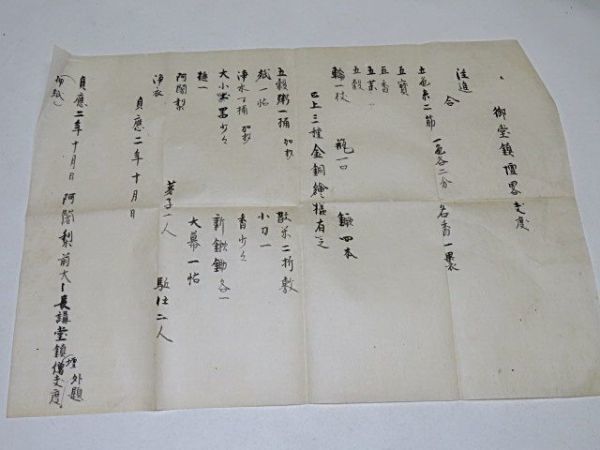 御堂鎮壇畧支度
注進
合
五色糸二筋 一色各二分 名香一裹
五寶
五香
五薬
五穀
輪一枚 瓶一口 四本
已上三種金銅繪様有之
五穀粥一桶 加杓 散米二折敷
紙一帖 小刀一
浄水一桶 加杓 香少々
大小土器少々 新鍬鋤各一
一 大幕一帖
阿闍梨 弟子一人 駈仕二人
浄衣
貞應二年十月日
貞應二年十月日 阿闍梨前大 長講堂鎮僧支度
壇 外題